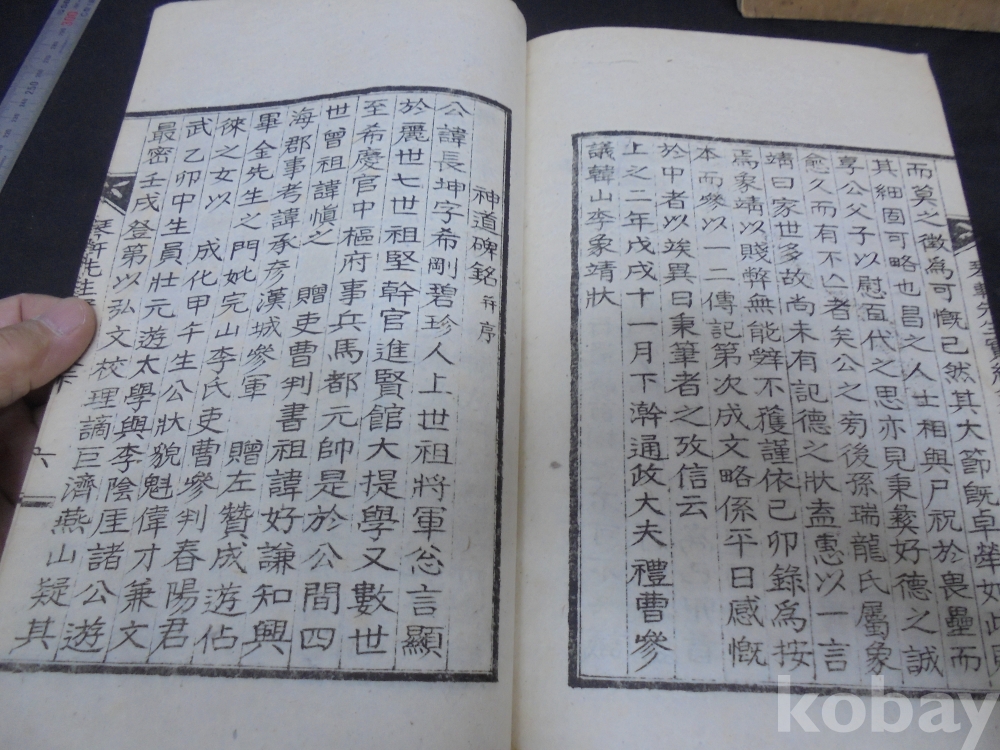 而莫之徵為可慨已然其大節旣卓犖如此
其細固可略也昌之人士相與尸祝於畏壘而
享公父子以慰百代之思亦見秉彝好德之誠
愈久而有不亡者矣公之旁後孫瑞龍氏屬象
靖曰家世多故尚未有記德之狀盍惠以一言
焉象靖以賤弊無能辭不獲謹依己卯錄為按
本而參以一二傳記第次成文略係平日感慨
於中者以竢異日秉筆者之攷信云
上之二年戊戌十一月下澣通政大夫禮曹參
議韓山李象靖狀
神道碑銘 幷序
公諱長坤字希剛碧珍人上世祖將軍忩言顯
於麗世七世祖堅幹官進賢館大提學又數世
至希慶官中樞府事兵馬都元帥是於公間四
世曾祖諱愼之 贈吏曹判書祖諱好謙知興
海郡事考諱承彥漢城參軍 贈左贊成遊佔
畢金先生之門妣完山李氏吏曹參判春陽君
徠之女以 成化甲午生公狀貌魁偉才兼文
武乙卯中生員壯元遊太學與李陰厓諸公遊
最密壬戌登第以弘文校理謫巨濟燕山疑其
六
kobay